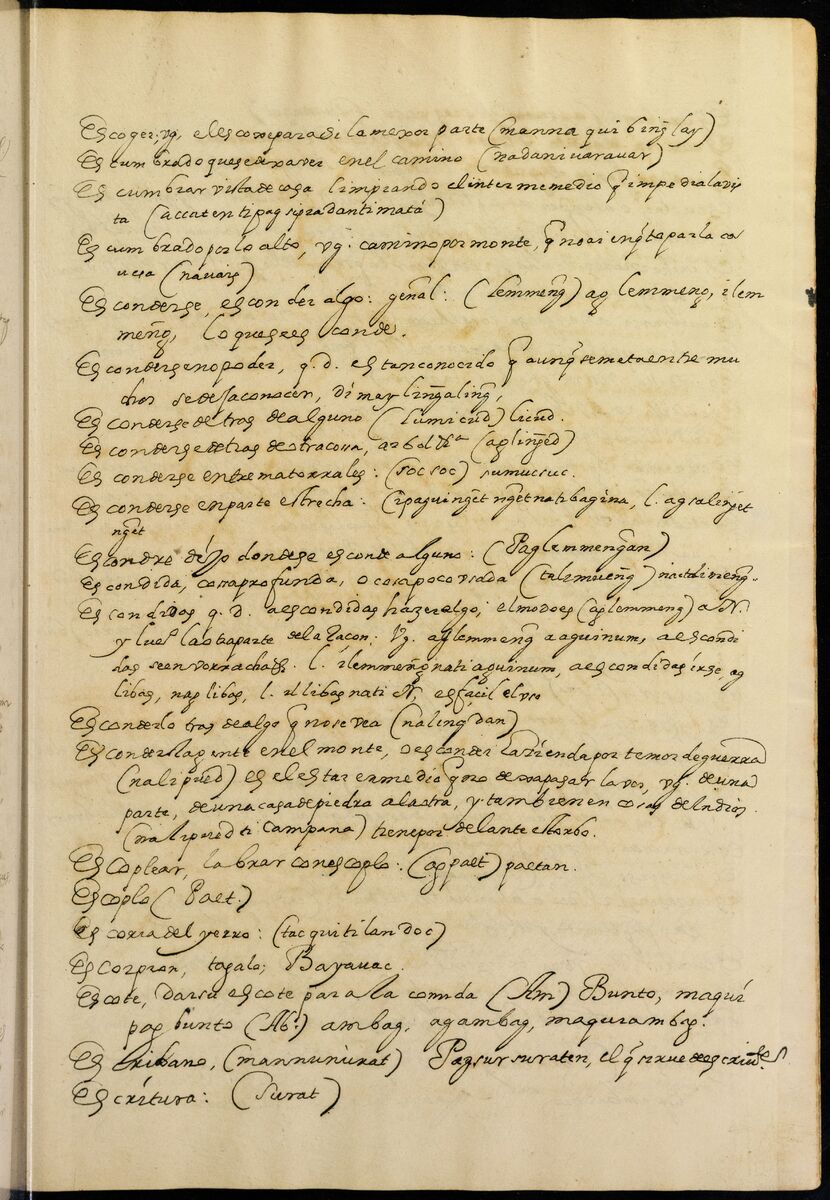 Escoger, vg, el escoxe para si la mexor parte (manna qui bing̃ lay)
Es cum brado que se dexa ver en el camino (nadaniuarauar)
Es cumbrar vista de cosa limpiando el intermemedio q̃ impedia la vis
ta (accaten ti pagsipadan ti matá)
Es cum brado por lo alto, vg. camino por monte, q̃ no ai en q̃ toparla ca
ueça (náuais)
Es conderse, escon der algo: gen̄al: (lem̃meng̃) ag lemmeng, ilem
meng̃, lo que se es conde.
Es conderse no poder, q. d. es tan conocido q̃ aunq̃ se meta entre mu
chos se de sa conocer, dí may ling̃aling̃,
Es conderse de tras de alguno (lumicud) licud.
Es conderse detras de otra cossa, arbol &ª (agling̃ed)
Es conderse entre matorrales: (soc soc) sumucsuc.
Es conderse en parte estrecha: (ipaguing̃et ng̃et na ti bagina, l. ag saling̃et
ng̃et
Escondrixo donde se esconde alguno: (Paglemmeng̃an)
Es condida, cossa profunda, o cosa poco vsada
Es condidas q. d. a escondidas házer algo; el modo es (aglemmeng) a N.
y lueg̊ la otra parte de la raçon: Vg. aglemmeng̃ a aguinum, a escondi
das se en vorracha l. ilemmeng̃ na ti aguinum, a escondidas irse, ag
libas, nag libas, l. illibas na ti N. es fácil el vso
Es conderlo tras de algo q̃ no se vea (naling̃dan)
Es conderse la gente en el monte, o esconder la hazienda por temor de guerra
(nalipued) es el estar en medio q̃ no dexa pasar la vos, vg. de una
parte, de una casa de piedra a la otra, y tambien en cosas de Indios
(nalipued ti campana) tiene por delante estorbo.
Es coplear, labrar con escoplo: (ag paet) paetan.
Escoplo (Paet.)
Es coria del yerro: (tac qui ti landoc)
Es corpion, togalo; Bayauac.
Escote, dar su escote para la comida (Am) Bunto, maguí
pag bunto (Ab.) ambag, agambag, maguiambag.
Es cribano, (mannunúrat) Pagsursuraten, el q̃ sirue de es criuir
Es critura: (Surat)